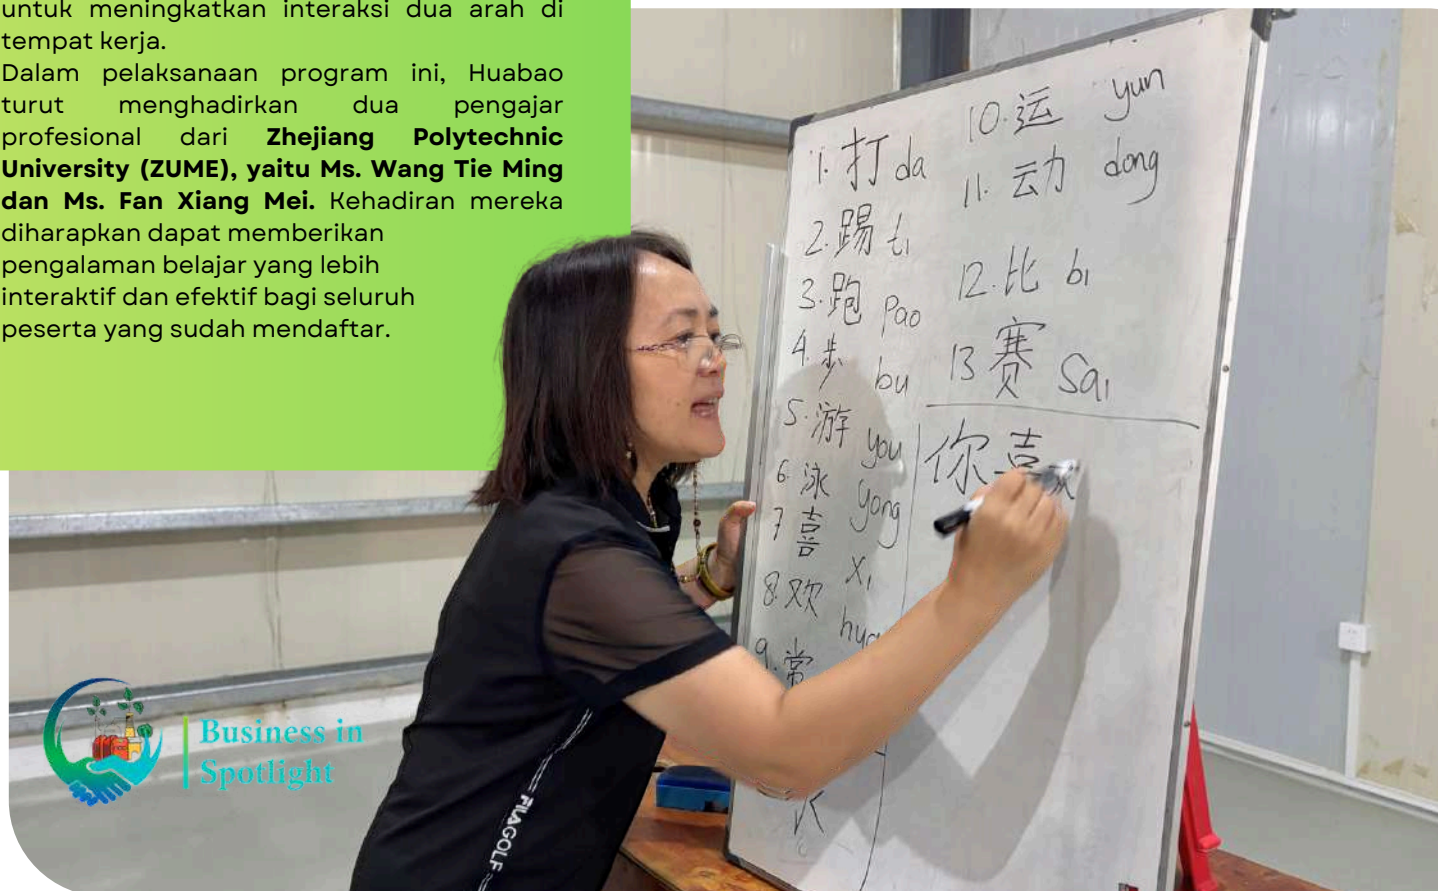 untuk meningkatkan interaksi dua arah di
tempat kerja.
Dalam pelaksanaan program ini, Huabao
turut menghadirkan dua pengajar
profesional dari Zhejiang Polytechnic
University (ZUME), yaitu Ms. Wang Tie Ming
dan Ms. Fan Xiang Mei. Kehadiran mereka
diharapkan dapat memberikan
pengalaman belajar yang lebih
interaktif dan efektif bagi seluruh
peserta yang sudah mendaftar.
1. 打 da
2. 踢 ti
3. 跑 pao
4. 步 bu
5. 游 you
6. 泳 yong
7 喜 xi
8. 欢
9. 常
10. 运 yun
11. 动 dong
12. 比 bi
13 赛 sai
你喜
Business in
Spotlight
FILA GOLF